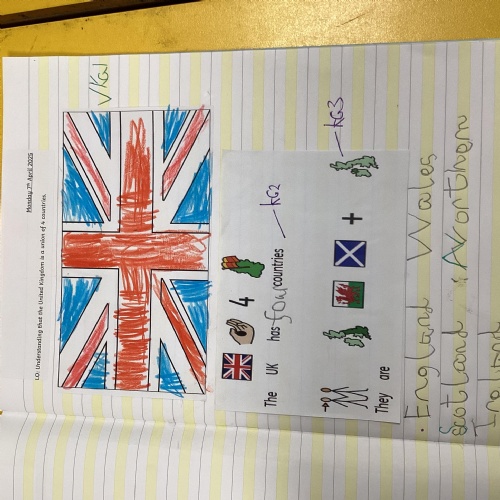 Monday 7th April 2025
LO: Understanding that the United Kingdom is a union of 4 countries.
✓KG1
4
The UK has four countries
KG2
+
KG3
They are
· England Wales
Scotland & Northern
Ireland